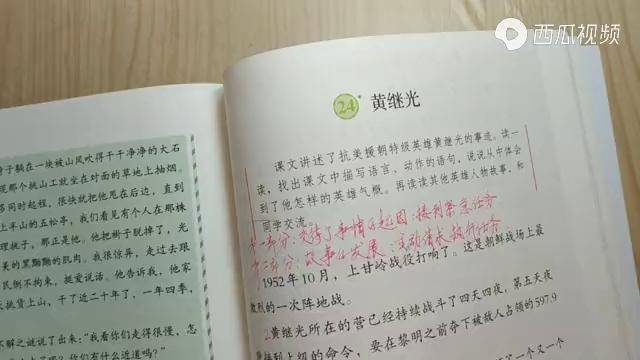 西瓜视频
24*
黄继光
课文讲述了抗美援朝特级英雄黄继光的事迹。读一
读,找出课文中描写语言、动作的语句,说说从中体会
到了他怎样的英雄气概。再读读其他英雄人物故事,和
同学交流。
第一部分:交待了事情的起因:接到紧急任务
第二部分:故事的发展:主动请求执行任务
1952年10月,上甘岭战役打响了。这是朝鲜战场上最
激烈的一次阵地战。
2黄继光所在的营已经持续战斗了四天四夜,第五天夜
接到上级的命令,要在黎明之前夺下被敌人占领的597.9
了一个又一个
子躺在一块被山风吹得干干净净的大石
现那个挑山工就坐在对面的草地上抽烟。
多同时起程,很快就把他甩在后边,直到
上半山的五松亭,我们看见有个人在那株
理桃子,那正是他。他把褂子脱掉了,光
美的黑黝黝的肌肉。我很惊异,走过去跟
民倒不拘束,挺爱说话。他告诉我,他家
天挑货上山,干了近二十年了,一年四季,
不解之谜说了出来:“我看你们走得很慢,怎
你们有什么近道吗?”